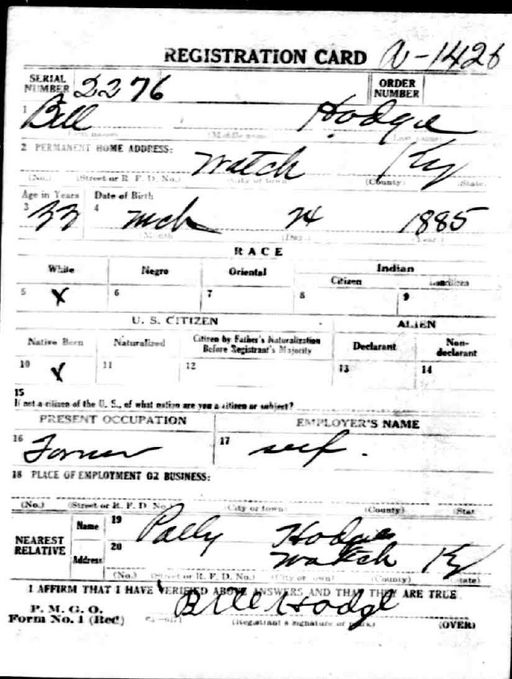 REGISTRATION CARD A-1426
SERIAL NUMBER 2276 ORDER NUMBER
1 Bill Hodge
2 PERMANENT HOME ADDRESS: Watch Ky
(No.) (Street or R. F. D. No.) (City or town) (County) (State)
Age in Years Date of Birth
3 33 4 Mch 24 1885
(Month) (Day) (Year)
RACE
White Negro Oriental Indian
Citizen
5 X 6 7 8 9
U. S. CITIZEN ALIEN
Native Born Naturalized Citizen by Father's Naturalization Before Registrant's Majority Declarant Non-declarant
10 X 11 12 13 14
15
If not a citizen of the U. S., of what nation are you a citizen or subject?
PRESENT OCCUPATION EMPLOYER'S NAME
16 Farmer 17 self.
18 PLACE OF EMPLOYMENT OR BUSINESS:
(No.) (Street or R. F. D. No.) (City or town) (County) (State
NEAREST RELATIVE Name 19 Polly Hodge
Address 20 Watch Ky
(No.) (Street or R. F. D. No.) (City or town) (County) (State)
I AFFIRM THAT I HAVE VERIFIED ABOVE ANSWERS AND THAT THEY ARE TRUE
P. M. G. O.
Form No. 1 (Red) Bill Hodge
(Registrant's signature or mark) (OVER)